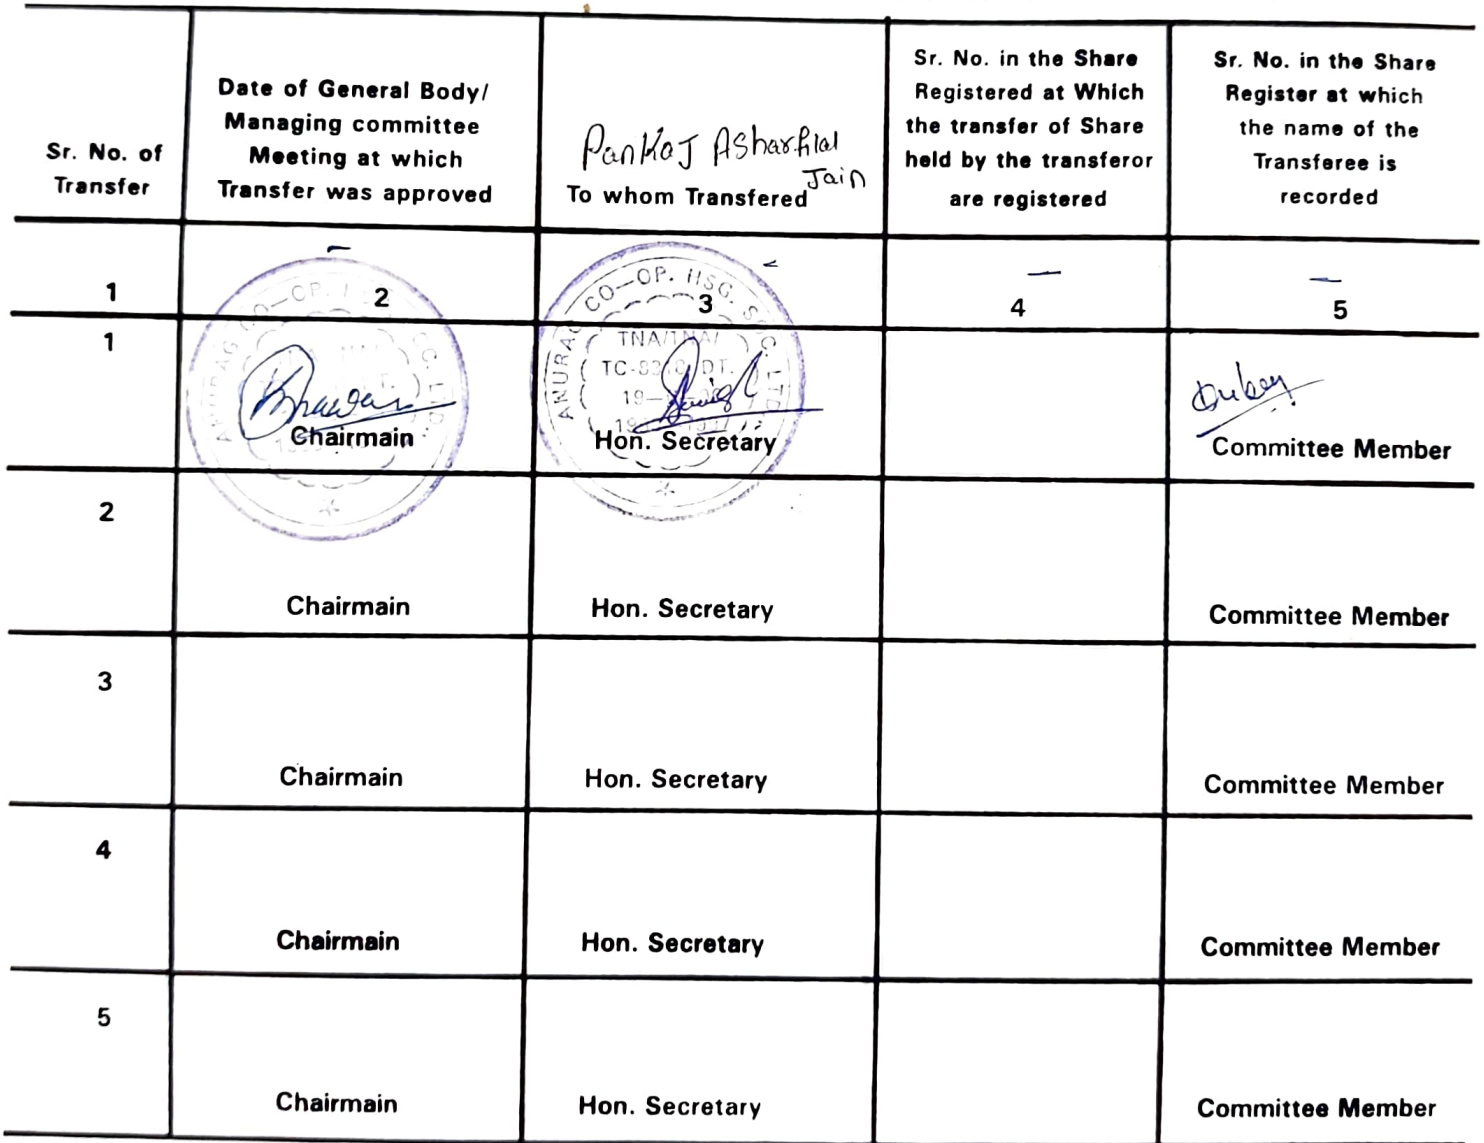 Sr. No. of
Transfer
Date of General Body/
Managing committee
Meeting at which
Transfer was approved
Pankaj Asharfilal
Jain
To whom Transfered
Sr. No. in the Share
Registered at Which
the transfer of Share
held by the transferor
are registered
Sr. No. in the Share
Register at which
the name of the
Transferee is
recorded
–
–
–
1
2
3
4
5
ANURAG CO-OP. HSG. SOC. LTD.
TNA/TNA/
1
Chairmain
Hon. Secretary
Dubey
Committee Member
2
Chairmain
Hon. Secretary
Committee Member
3
Chairmain
Hon. Secretary
Committee Member
4
Chairmain
Hon. Secretary
Committee Member
5
Chairmain
Hon. Secretary
Committee Member